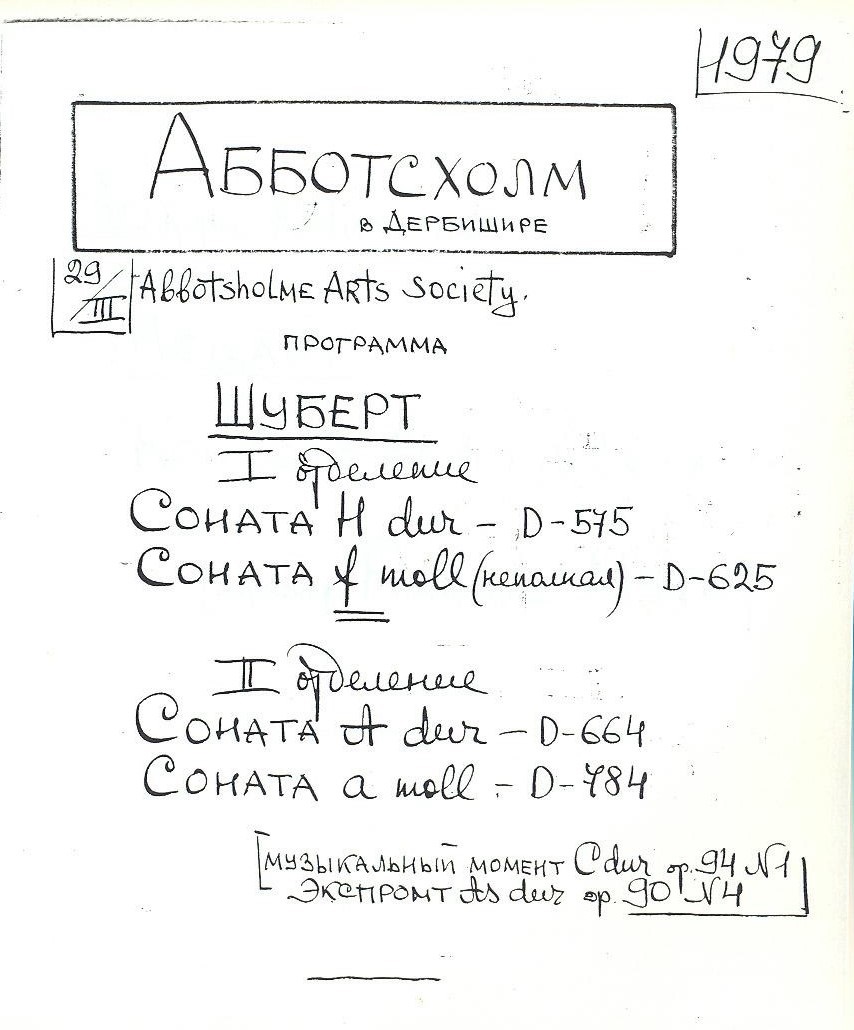 1979
АББОТСХОЛМ
в ДЕРБИШИРЕ
29/III Abbotsholme Arts Society.
ПРОГРАММА
ШУБЕРТ
I отделение
СОНАТА H dur – D-575
СОНАТА f moll (неполная) – D-625
II отделение
СОНАТА A dur – D-664
СОНАТА a moll – D-784
[МУЗЫКАЛЬНЫЙ МОМЕНТ C dur op. 94 N1
ЭКСПРОМТ As dur op. 90 N4]